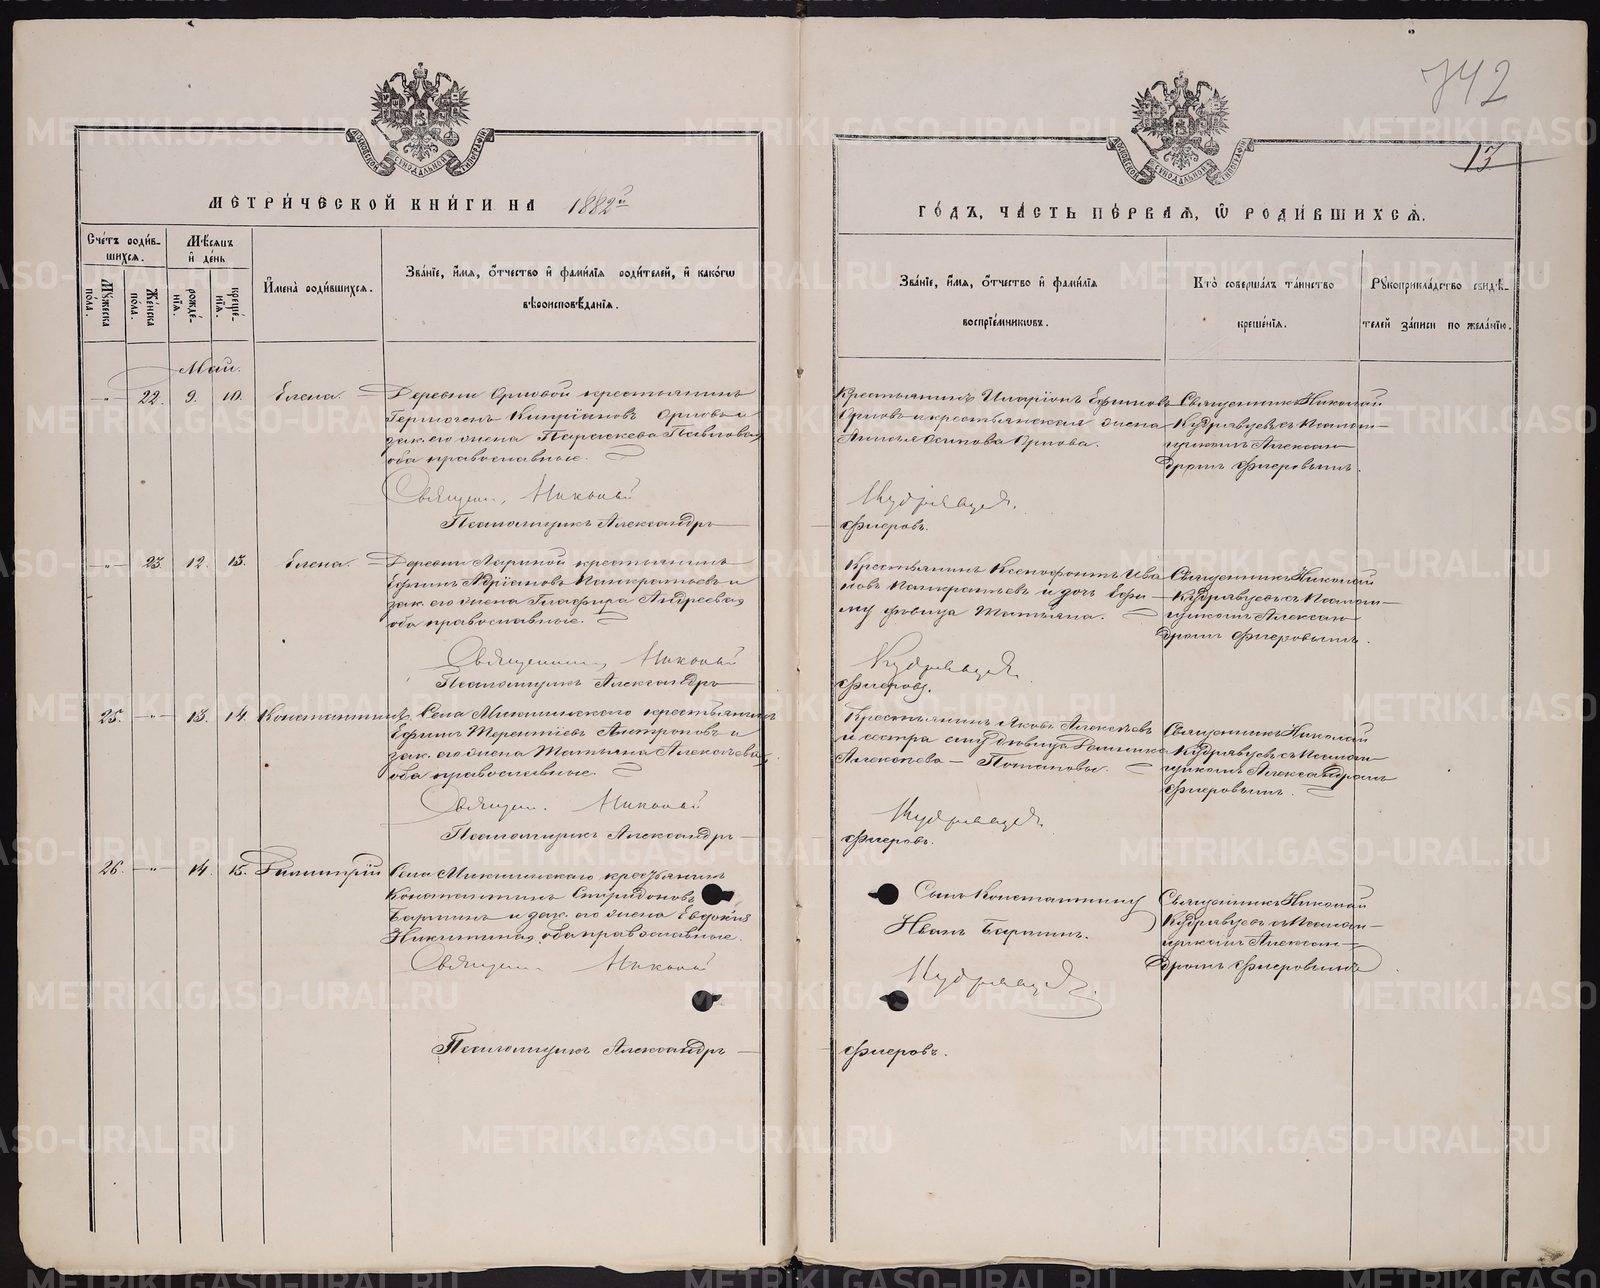 742
13
МОСКОВСКОЙ СУНОДАЛЬНОЙ ТИПОГРАФІИ
МОСКОВСКОЙ СУНОДАЛЬНОЙ ТИПОГРАФІИ
МЕТРИ́ЧЕСКОЙ КНИ́ГИ НА 1882й
ГО́ДЪ, ЧА́СТЬ ПЕ́РВАЯ, Ѿ РОДИ́ВШИХСЯ.
Сче́тъ роди́в-
шихся.
Му́жеска по́ла.
Же́нска пола.
Мѣ́сяцъ
и҆ де́нь
рожде́-
нїя.
креще́-
нїя.
И҆мена̀ роди́вшихся.
Зва́нїе, и҆́мя, ѻ҆́тчество и҆ фами́лїя роди́телей, и҆ како́гѡ
вѣроисповѣ́данїя.
Зва́нїе, и҆́мя, ѻ҆́тчество и҆ фами́лїя
воспрїе́мникѡвъ.
Кто̀ соверша́лъ та́инство
креще́нїя.
Рꙋкоприкла́дство свидѣ́-
телей за́писи по жела́нїю.
Май.
-"- 22. 9. 10. Елена.
Деревни Орловой крестьянинъ
Гермогенъ Кипріановъ Орловъ и
зак. его жена Параскева Павлова,
оба православные.
Священ. Николай
Псаломщикъ Александръ
Крестьянинъ Иларіонъ Ефимовъ
Орловъ и крестьянская жена
Анисья Осипова Орлова.
Кудрявцев.
Фигеровъ.
Священникъ Николай
Кудрявцевъ съ Псалом-
щикомъ Алексан-
дромъ Фигеровымъ.
-"- 23. 12. 13. Елена.
Деревни Лариной крестьянинъ
Ефимъ Адріановъ Панкратьевъ и
зак. его жена Глафира Андреева,
оба православные.
Священник Николай
Псаломщикъ Александръ
Крестьянинъ Ксенофонтъ Ива
новъ Панкратьевъ и дочь Ефи-
му девица Татьяна.
Кудрявцев.
Фигеровъ.
Священникъ Николай
Кудрявцевъ съ Псалом-
щикомъ Алексан-
дромъ Фигеровымъ.
25. -"- 13. 14. Константинъ.
Села Микшинского крестьянинъ
Ефимъ Терентіевъ Антроповъ и
зак. его жена Татьяна Алексѣева,
оба православные.
Священ. Николай
Псаломщикъ Александръ
Крестьянинъ Яковъ Алексѣевъ
и сестра ему девица
Алексѣева - Потаповы.
Кудрявцев
Фигеровъ.
Священникъ Николай
Кудрявцевъ съ Псалом-
щикомъ Александромъ
Фигеровымъ.
26. -"- 14. 15. Димитрій
Села Микшинскаго крестьянинъ
Константинъ Спиридоновъ
и зак. его жена Евдокія
Никитина, оба православные.
Священ. Николай
Псаломщикъ Александръ
Сынъ Константину
Иванъ
Кудрявцев.
Фигеровъ.
Священникъ Николай
Кудрявцевъ съ Псалом-
щикомъ Алексан-
дромъ Фигеровымъ
METRIKI.GASO-URAL.RU